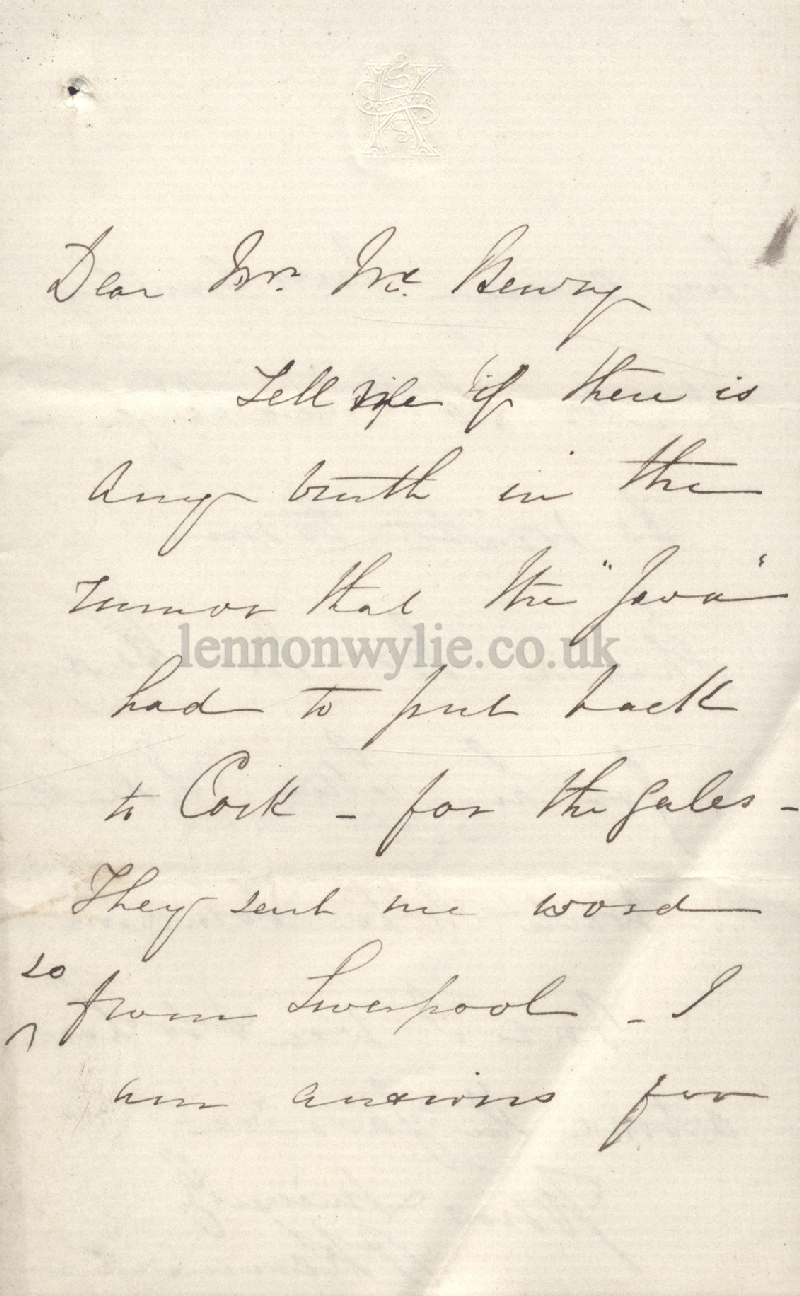 Dear Mr. Mc. Henry
Tell me if there is
any truth in the
rumor that the "Java"
had to put back
to Cork - for the gales -
They sent me word
so
from Liverpool - I
am anxious for
lennonwylie.co.uk